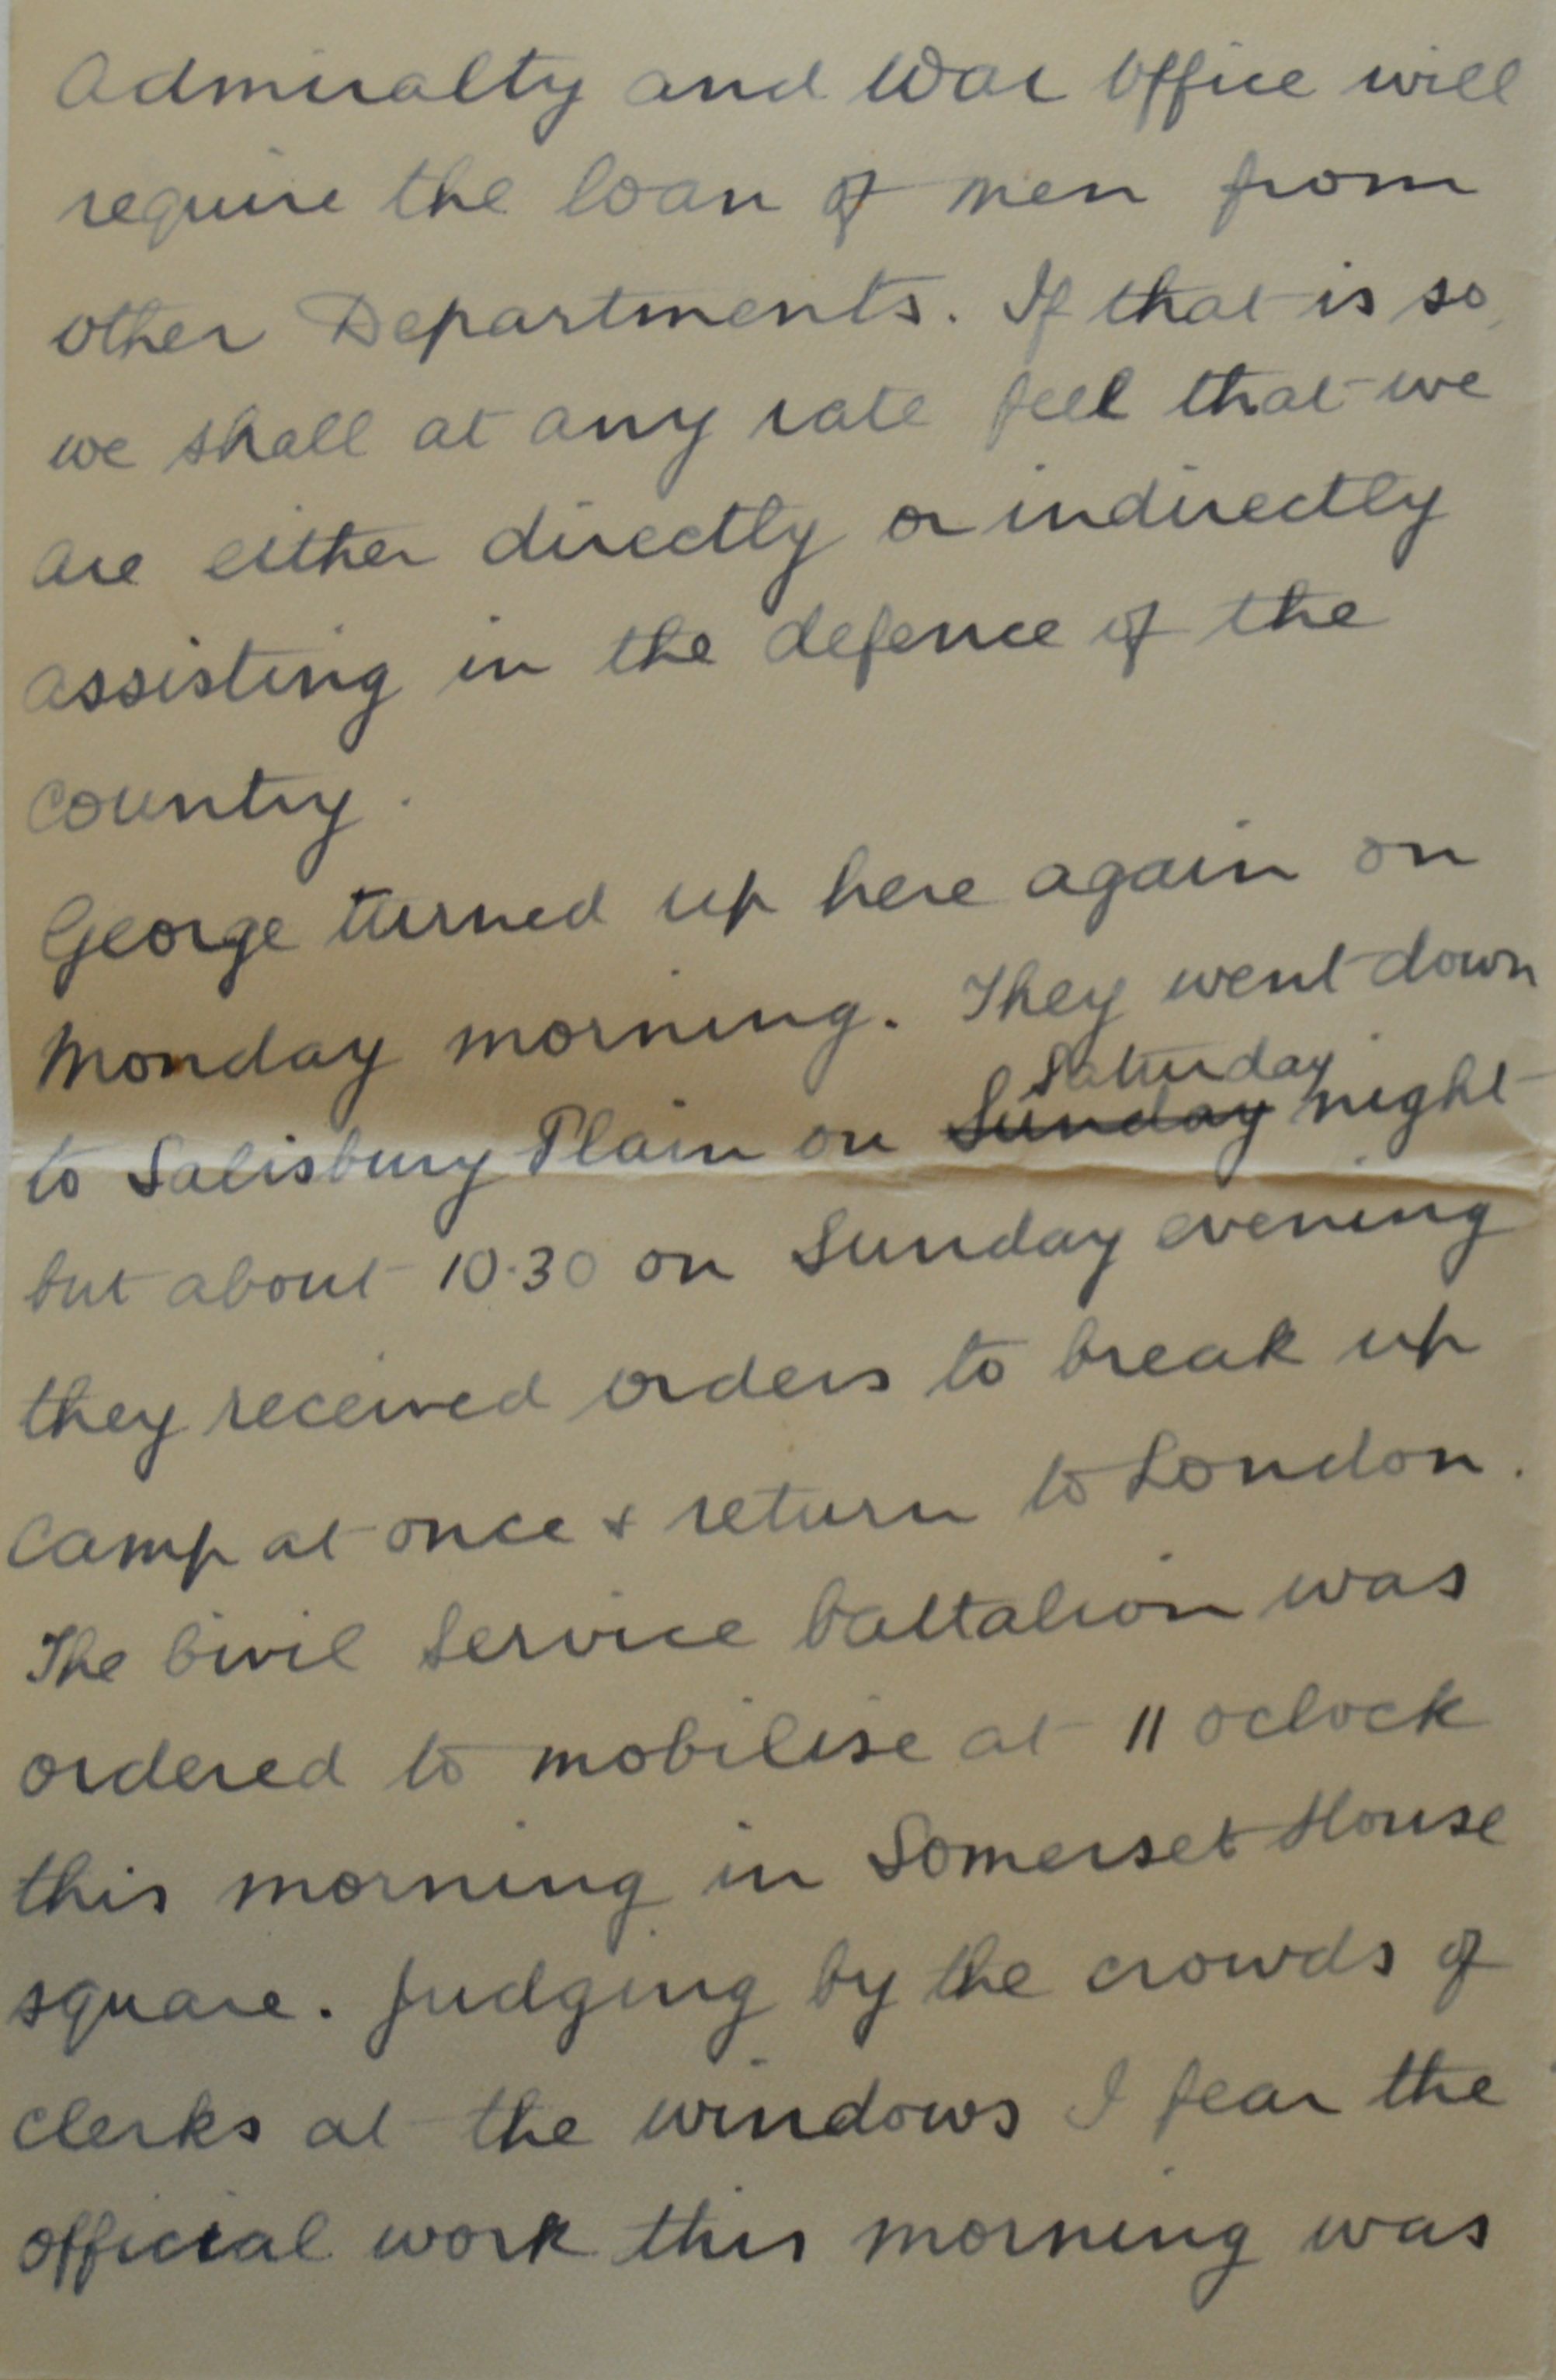 Admiralty and War Office will
require the loan of men from
other Departments. If that is so,
we shall at any rate feel that we
are either directly or indirectly
assisting in the defence of the
country.
George turned up here again on
Monday morning. They went down
Saturday
to Salisbury Plain on Sunday night
but about 10.30 on Sunday evening
they received orders to break up
camp at once & return to London.
The Civil Service battalion was
ordered to mobilise at 11 oclock
this morning in Somerset House
square. Judging by the crowds of
clerks at the windows I fear the
official work this morning was